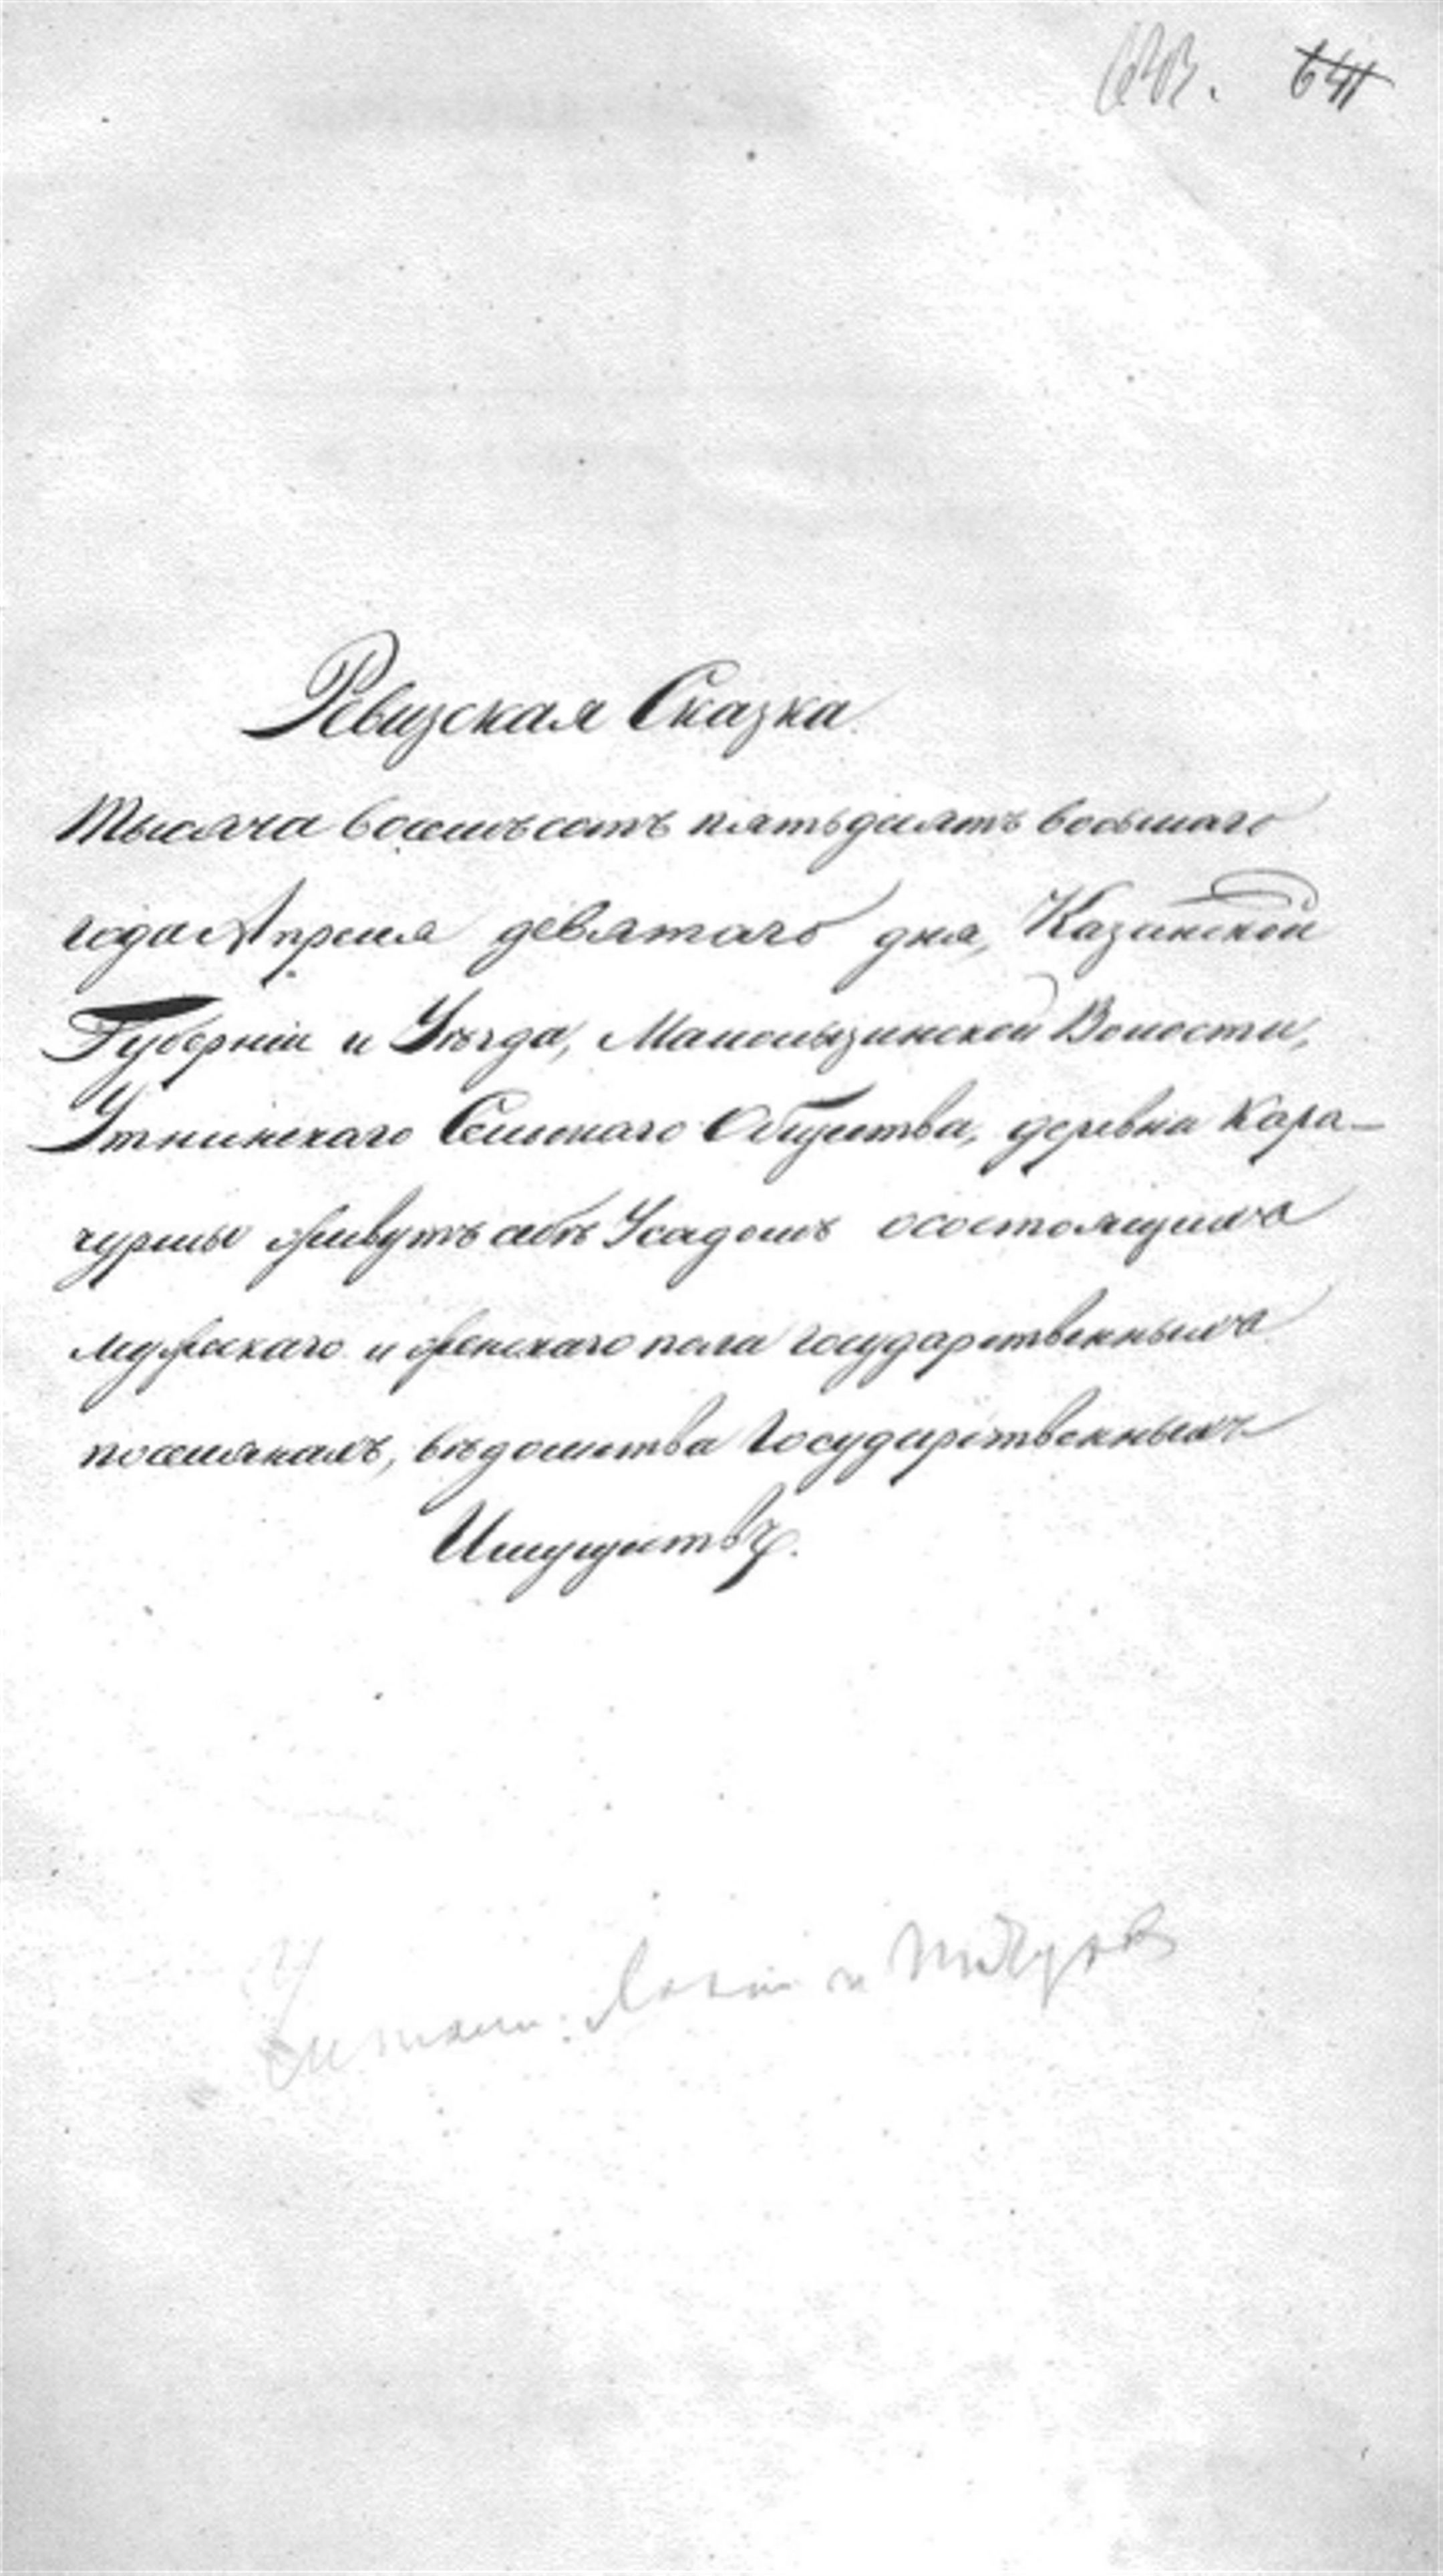 641
Ревизская Сказка.
Тысяча восемьсотъ пятьдесятъ восьмаго
года Апреля девятаго дня, Казанской
Губерніи и Уѣзда, Мамсинской Волости,
Утнинскаго Сельскаго Общества, деревни Кара-
чурмы живутъ Усадомъ осостоящихъ
мужескаго и женскаго пола государственныхъ
поселянахъ, вѣдомства Государственныхъ
Имуществъ.